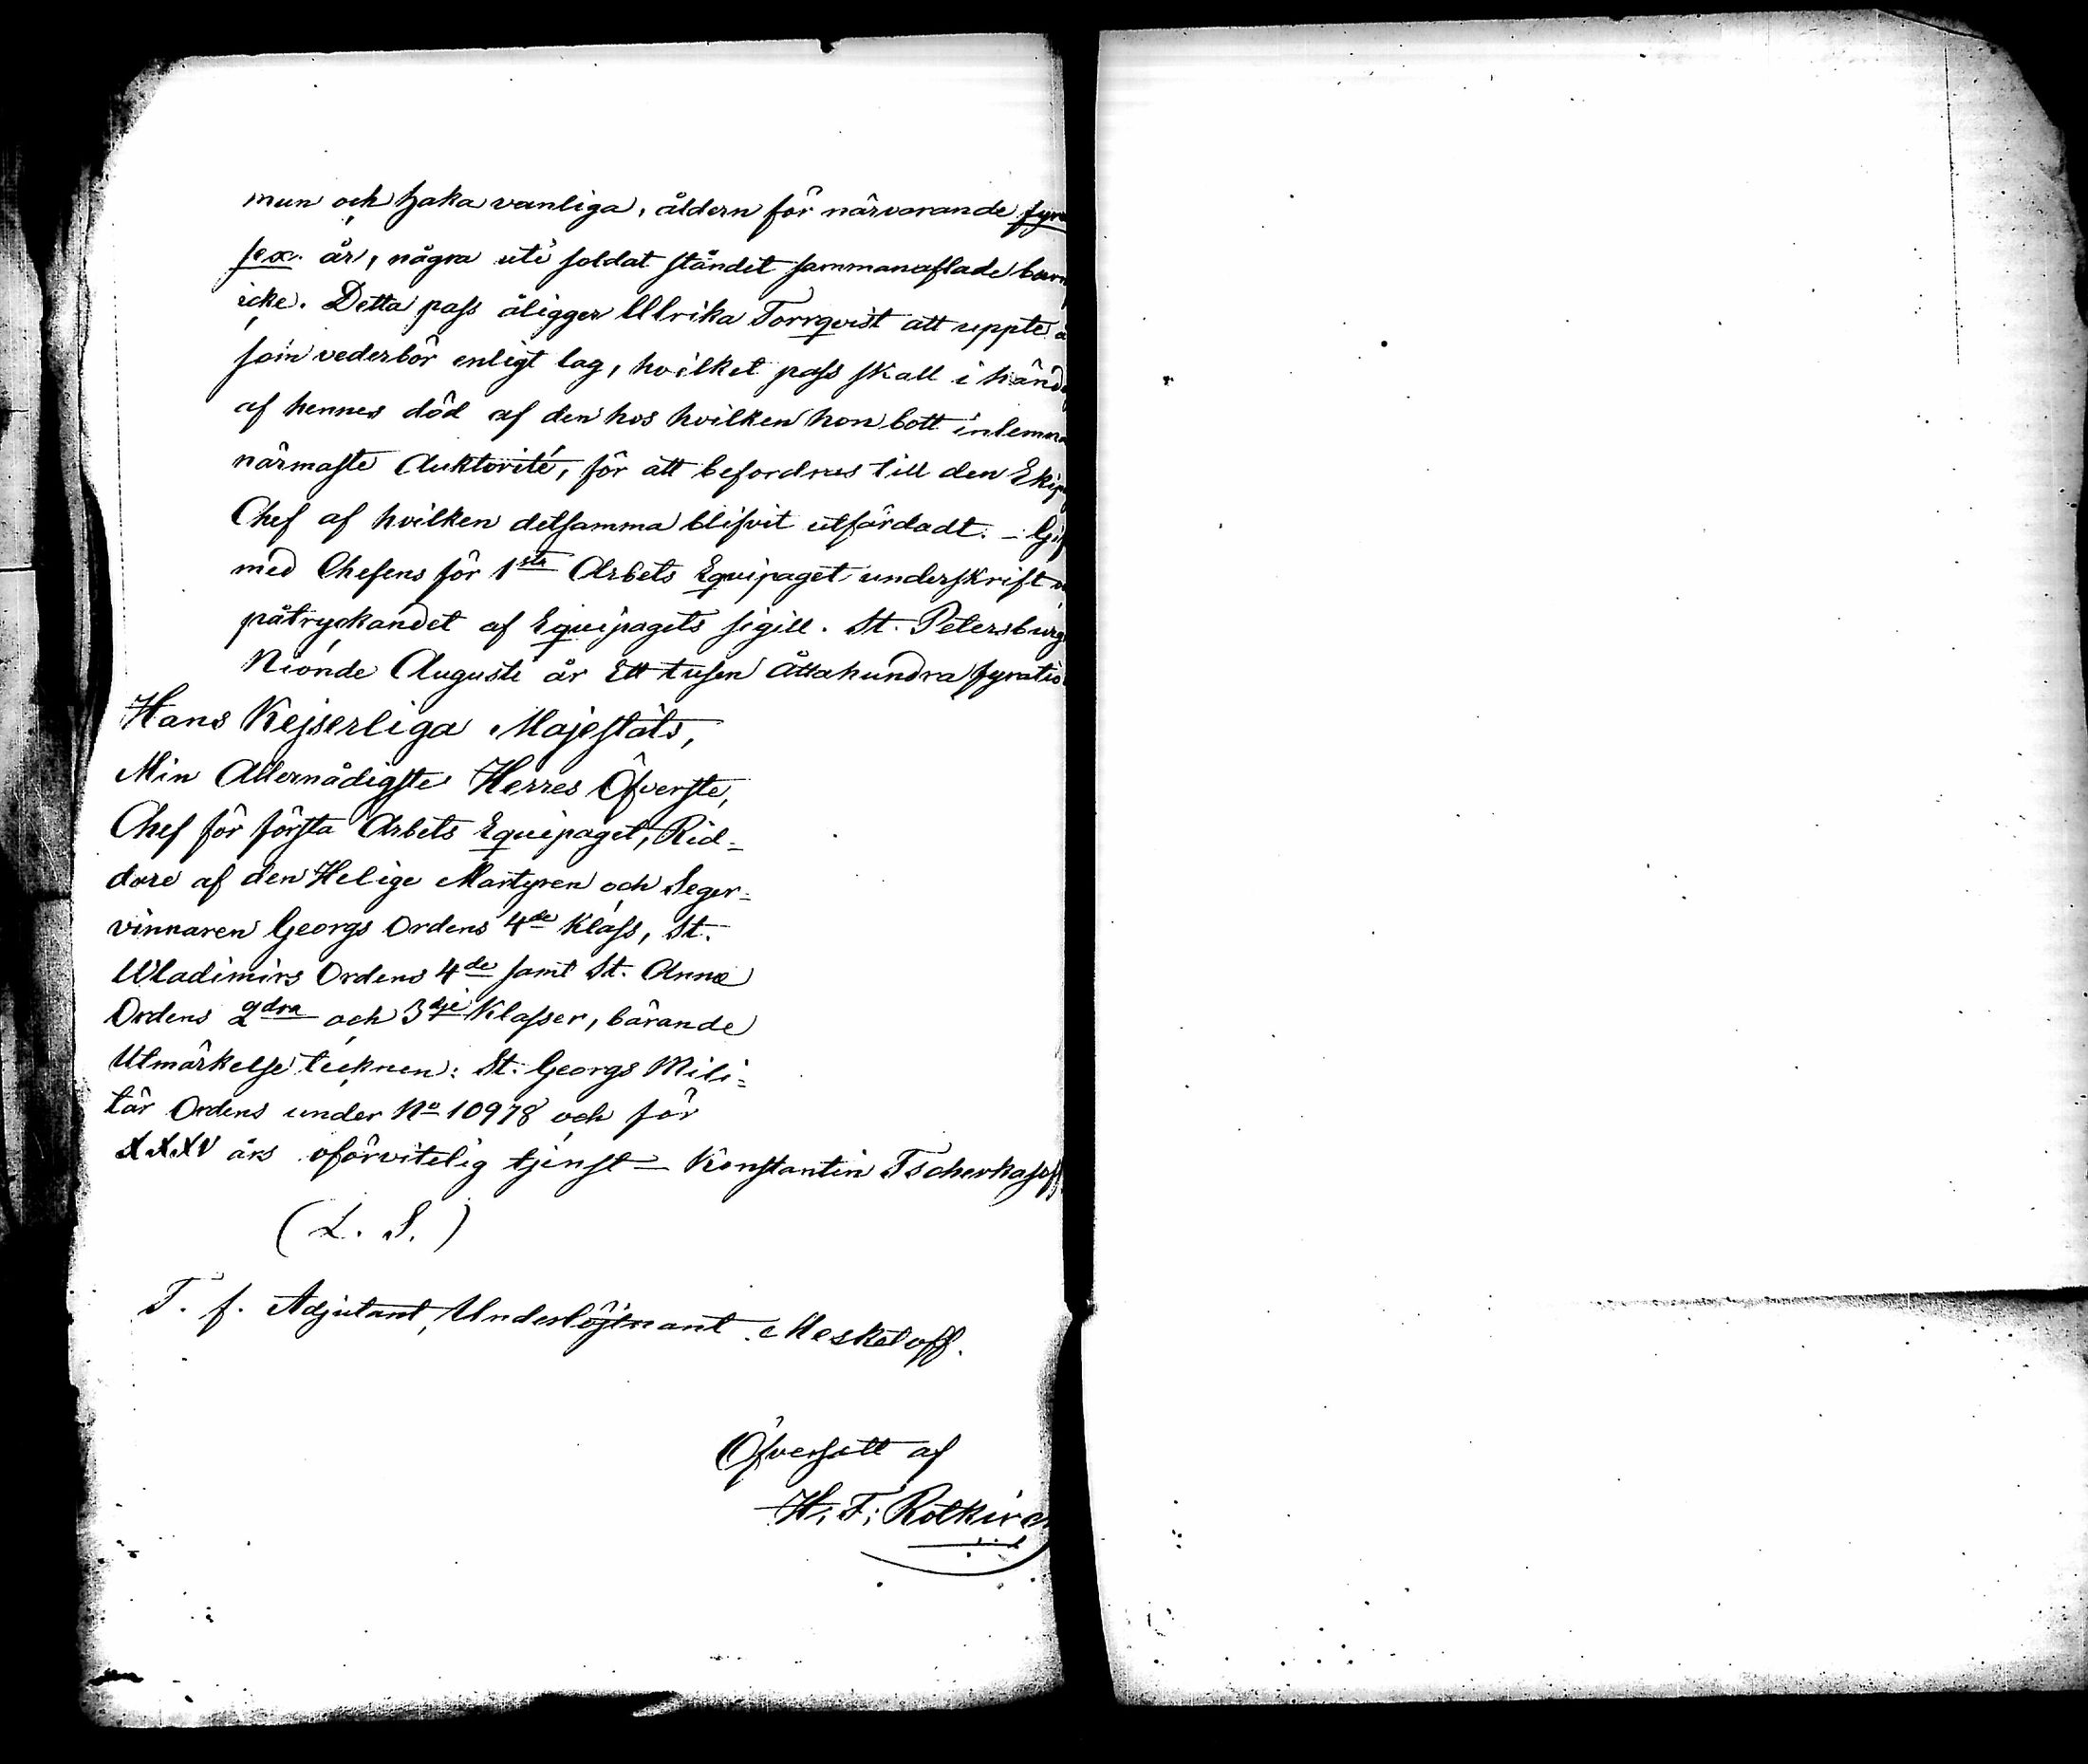 mun och haka vanliga, åldern för närvarande fyra
sex år, några uti soldat ståndet sammanaflade barn
icke. Detta pass åligger Ulrika Torrqvist att uppte å
som vederbör enligt lag, hvilket pass skall i händ
af hennes död af den hos hvilken hon bott inlemna
närmaste Auktorité, för att befordras till den Ekip
Chef af hvilken detsamma blifvit utfärdadt. – Gif
med Chefens för 1sta Arbets Equipaget underskrift
påtryckandet af Equipagets sigill. St. Petersburg
Nionde Augusti år Ett tusen Åttahundra fyratio
Hans Kejserliga Majestäts,
Min Allernådigste Herres Öfverste,
Chef för första Arbets Equipaget, Rid-
dare af den Helige Martyren och Seger-
vinnaren Georgs Ordens 4de Klass, St.
Wladimirs Ordens 4de samt St. Annæ
Ordens 2dra och 3dje Klasser, bärande
Utmärkelse tecknen: St. Georgs Mili-
tär Ordens under No 10978 och för
XXXV års oförvitelig tjenst – Konstantin Tscherkasoff
(L. S.)
T. f. Adjutant, Underlöjtnant Meskeloff.
Öfversatt af
H. F. Rotkirch